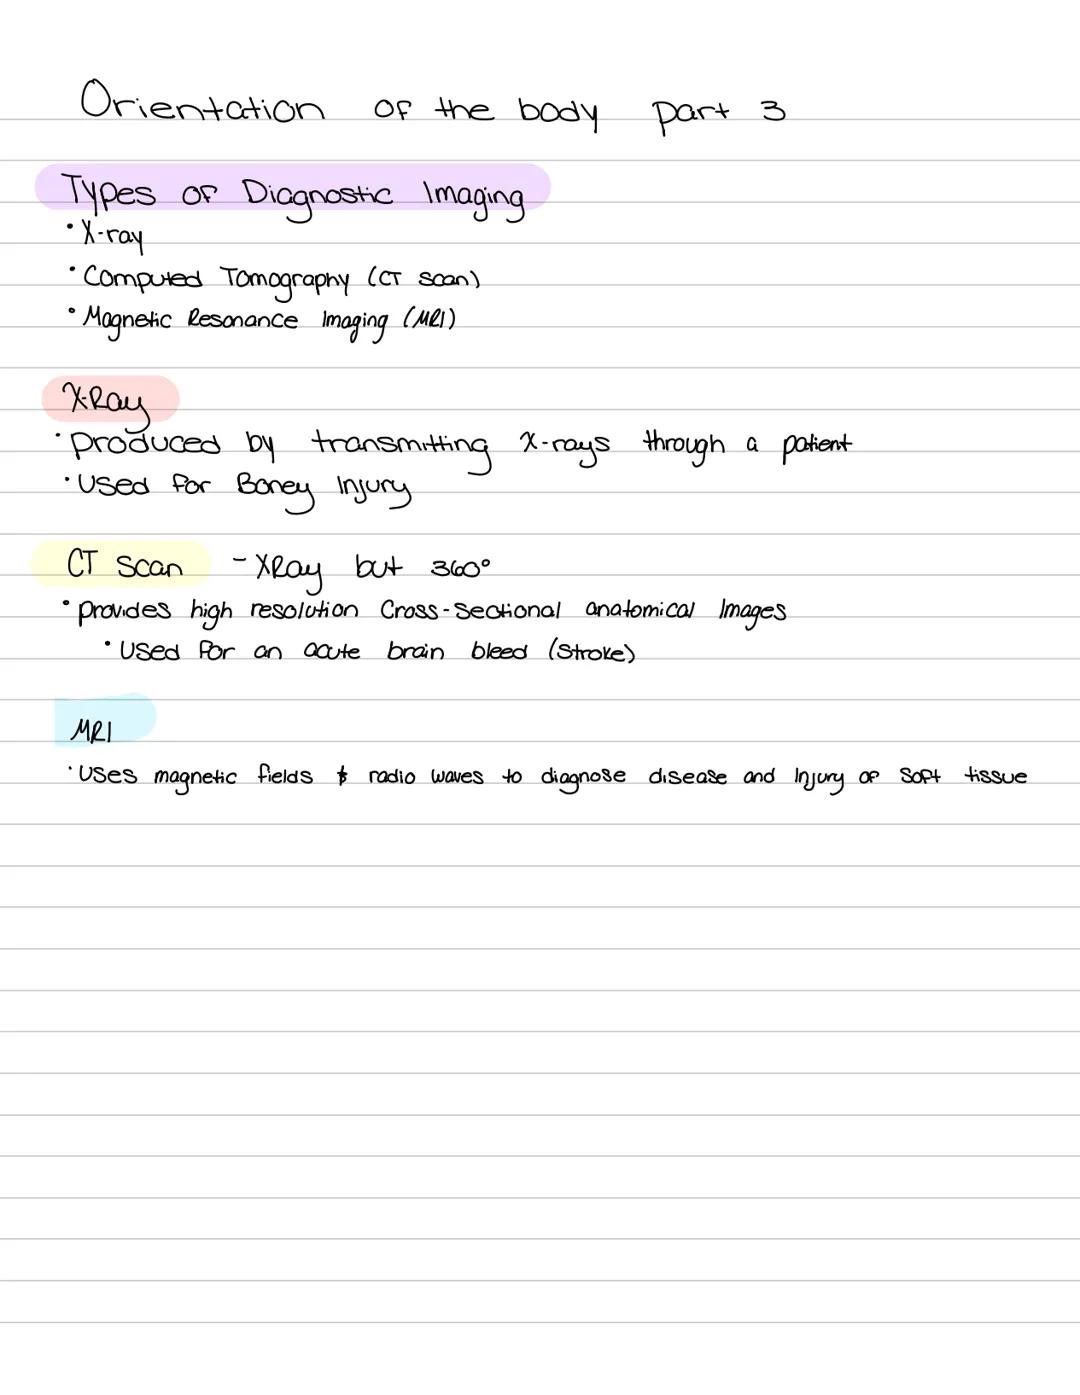 Orientation of the body part 3
Types of Diagnostic Imaging
• X-ray
• Computed Tomography (CT scan)
• Magnetic Resonance Imaging (MRI)
X-Ray
• produced by transmitting X-rays through a patient
• Used for Boney Injury
CT Scan - XRay but 360°
• provides high resolution Cross-Sectional anatomical Images
• Used for an acute brain bleed (Stroke)
MRI
• Uses magnetic fields & radio waves to diagnose disease and Injury of Soft tissue